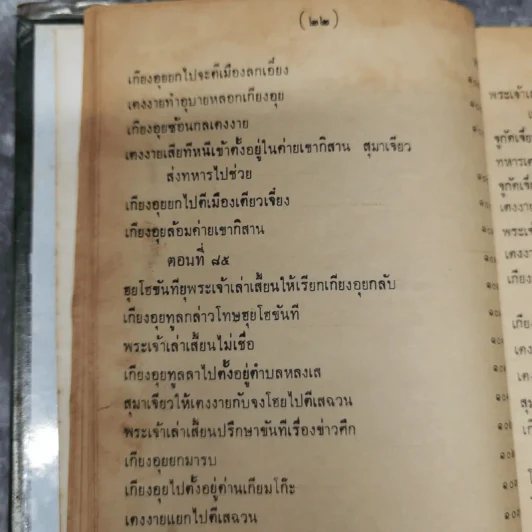 (๒๒)
เกียงอุยยกไปจะตีเมืองลกเอี๋ยง
เตงงายทำอุบายหลอกเกียงอุย
เกียงอุยซ้อนกลเตงงาย
เตงงายเสียทีหนีเข้าตั้งอยู่ในค่ายเขากิสาน สุมาเจียว
ส่งทหารไปช่วย
เกียงอุยยกไปตีเมืองเตียวเจี๋ยง
เกียงอุยล้อมค่ายเขากิสาน
ตอนที่ ๘๕
ฮุยโฮขันทียุพระเจ้าเล่าเสี้ยนให้เรียกเกียงอุยกลับ
เกียงอุยทูลกล่าวโทษฮุยโฮขันที
พระเจ้าเล่าเสี้ยนไม่เชื่อ
เกียงอุยทูลลาไปตั้งอยู่ตำบลหลงเส
สุมาเจียวให้เตงงายกับจงโฮยไปตีเสฉวน
พระเจ้าเล่าเสี้ยนปรึกษาขันทีเรื่องข่าวศึก
เกียงอุยยกมารบ
เกียงอุยไปตั้งอยู่ด่านเกียมโก๊ะ
เตงงายแยกไปตีเสฉวน
พระเจ้าเ
จูกัดเจี๋ย
ทหารเต
จูกัดเจี๋ย
เตงงาย
พระเจ้า
เตงงา
เกียง